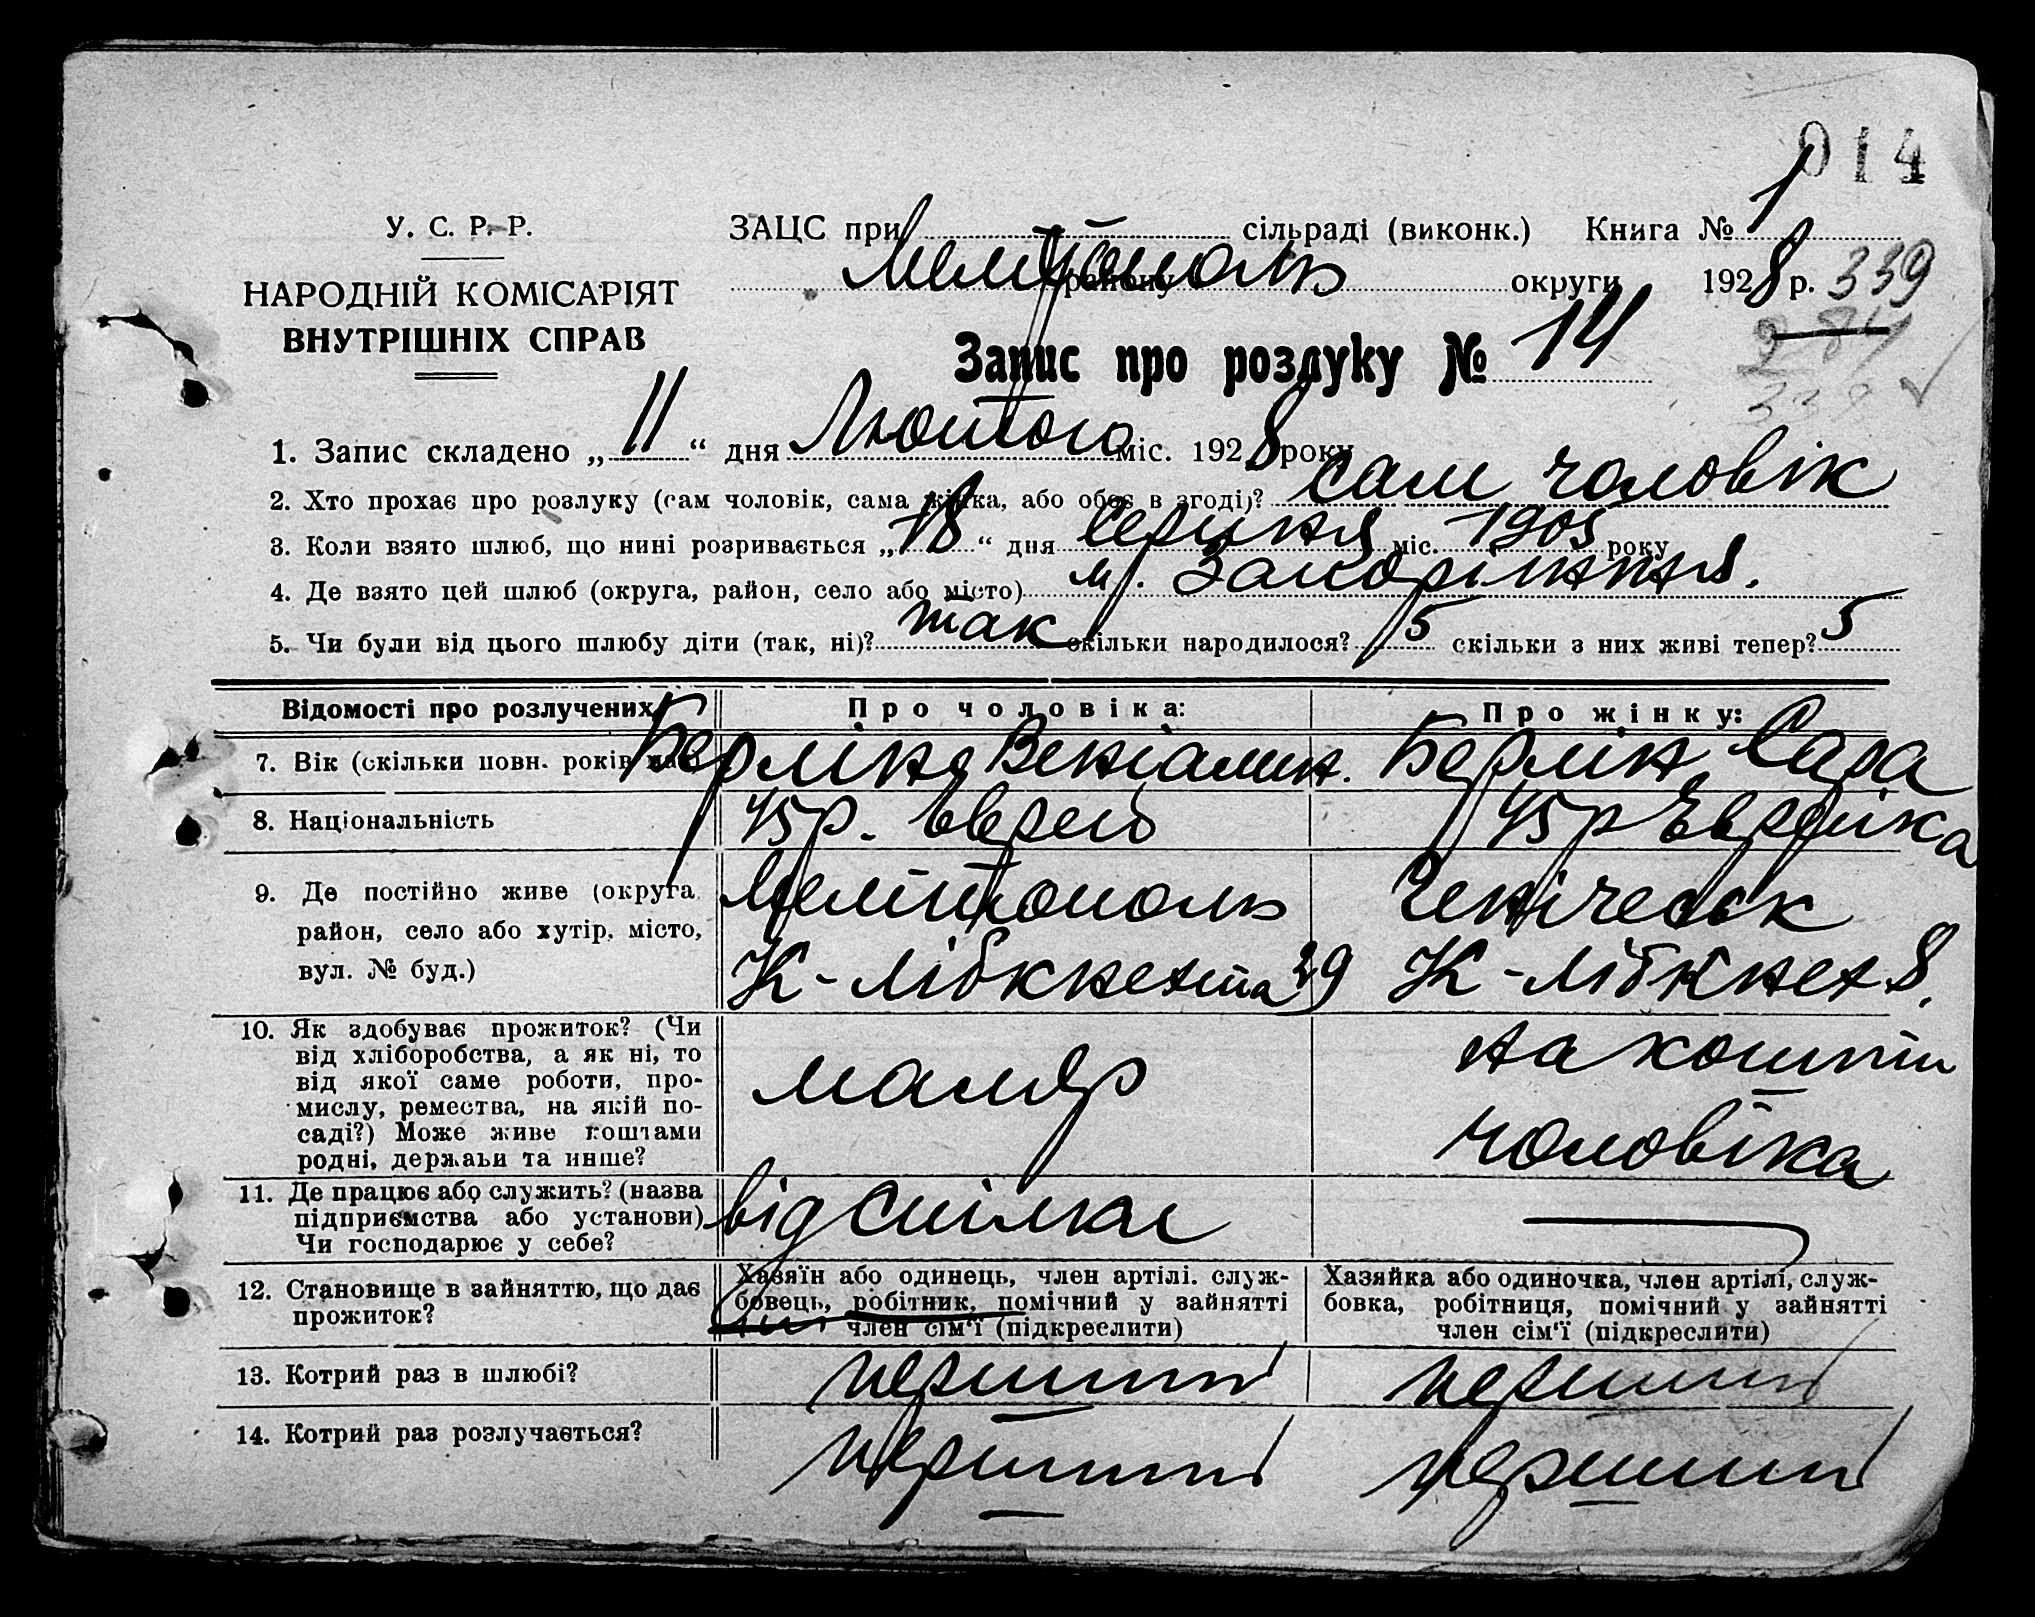 014
У. С. Р. Р.
ЗАЦС при сільраді (виконк.) Книга № 1
НАРОДНІЙ КОМІСАРІЯТ
ВНУТРІШНІХ СПРАВ
Мелітополь району округи 1928 р. 339
284
338
Запис про розлуку № 14
1. Запис складено „11“ дня Лютого міс. 1928 року
2. Хто прохає про розлуку (сам чоловік, сама жінка, або обоє в згоді)? сам чоловік
3. Коли взято шлюб, що нині розривається „18“ дня Серпня міс. 1905 року
4. Де взято цей шлюб (округа, район, село або місто) м.
5. Чи були від цього шлюбу діти (так, ні)? так скільки народилося? 5 скільки з них живі тепер? 5
Відомості про розлучених Про чоловіка: Про жінку:
7. Вік (скільки повн. років має) Берлін Веніамин. Берлін Сара
8. Національність 45 р. Єврей 45 р Єврейка
9. Де постійно живе (округа, Мелітополь Генічеськ
район, село або хутір, місто, К-Лібкнехта 29 К-Лібкнех 8.
вул. № буд.)
10. Як здобуває прожиток? (Чи на кошти
від хліборобства, а як ні, то
від якої саме роботи, про- маляр
мислу, ремества, на якій по-
саді?) Може живе коштами чоловіка
родні, держави та инше?
11. Де працює або служить? (назва від Спілки
підприємства або установи)
Чи господарює у себе?
12. Становище в зайняттю, що дає Хазяїн або одинець, член артілі, служ- Хазяйка або одиночка, член артілі, служ-
прожиток? бовець, робітник, помічний у зайнятті бовка, робітниця, помічний у зайнятті
член сім'ї (підкреслити) член сім'ї (підкреслити)
13. Котрий раз в шлюбі? перший перший
14. Котрий раз розлучається? перший перший